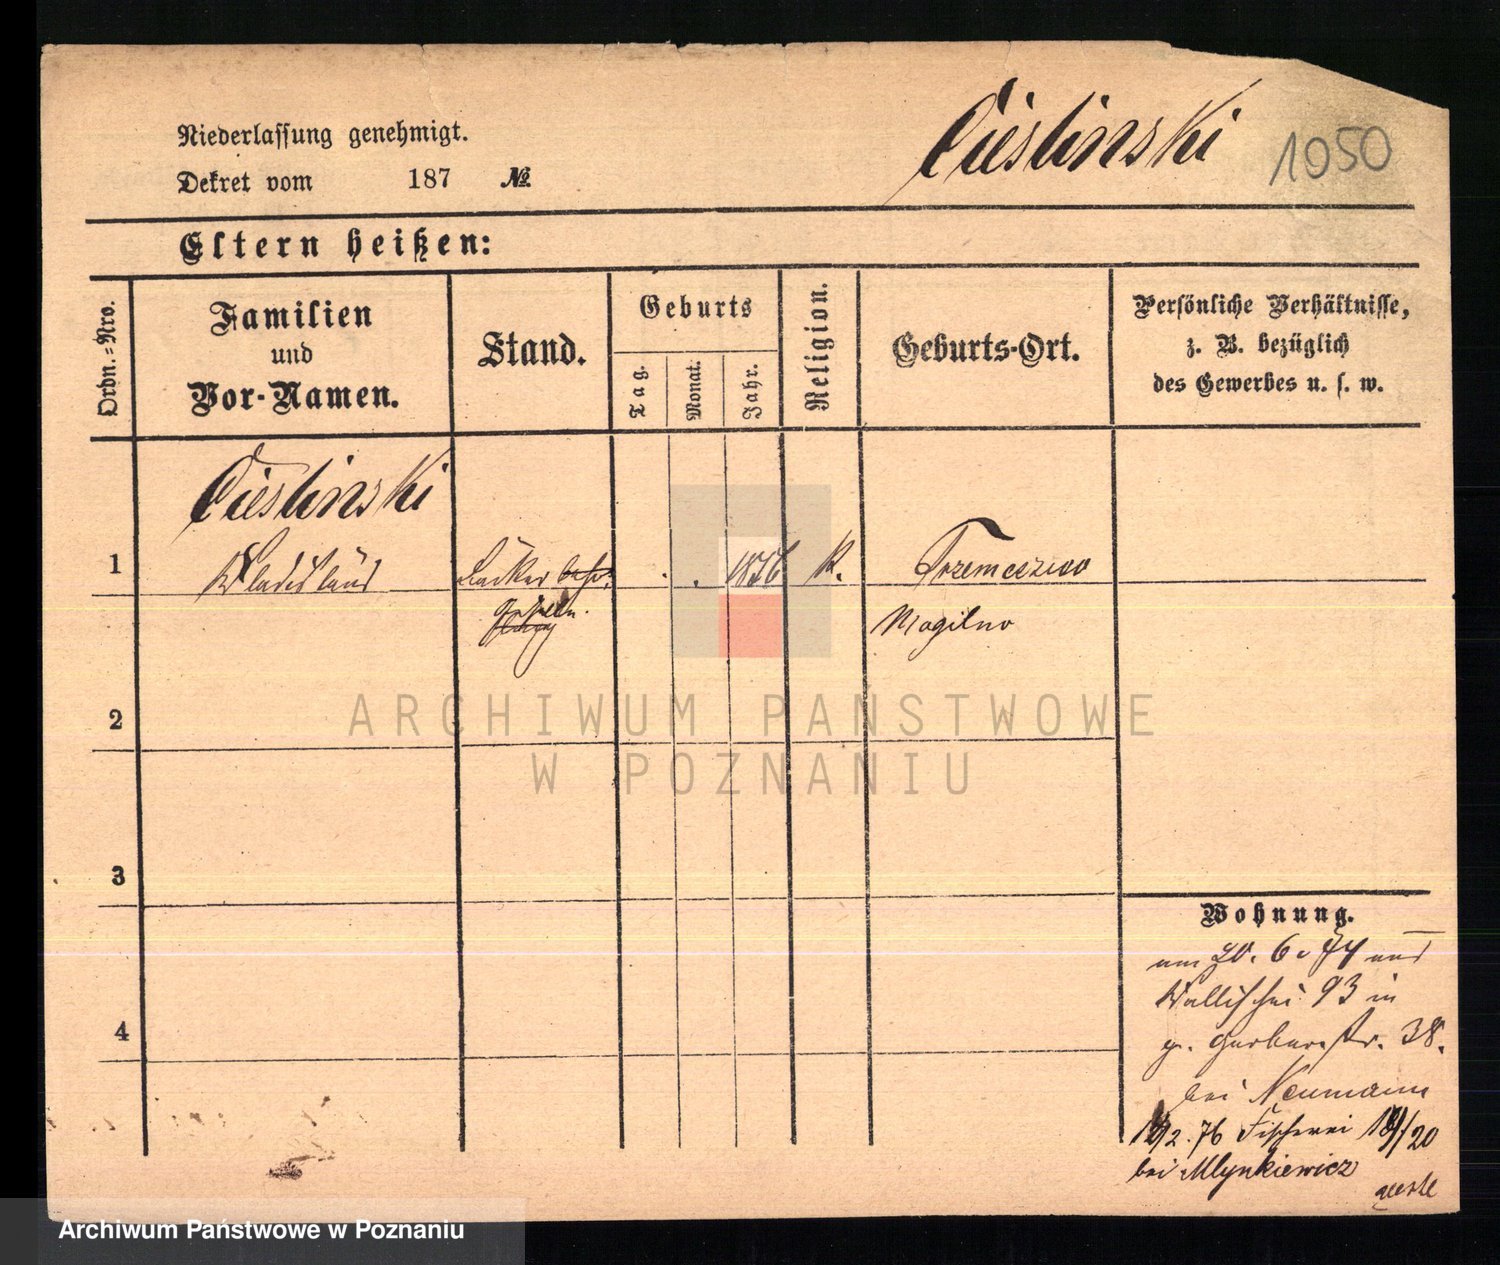 Niederlassung genehmigt.
Dekret vom 187 №
Cieslinski 1050
Eltern heißen:
Ordn.=Nro.
Familien
und
Vor-Namen.
Stand.
Geburts
Tag.
Monat.
Jahr.
Religion.
Geburts-Ort.
Persönliche Verhältnisse,
z. B. bezüglich
des Gewerbes u. s. w.
Cieslinski
1 Wladislaus Bäcker 1856 K. Trzemeszno
Mogilno
2
3
4
ARCHIWUM PAŃSTWOWE
W POZNANIU
Wohnung.
am 20. 6. 74 aus
Wallischei 93 in
gr. Gerberstr. 38.
bei Neumann
2. 76 Fischerei 19/20
bei Mlynkiewicz
Archiwum Państwowe w Poznaniu